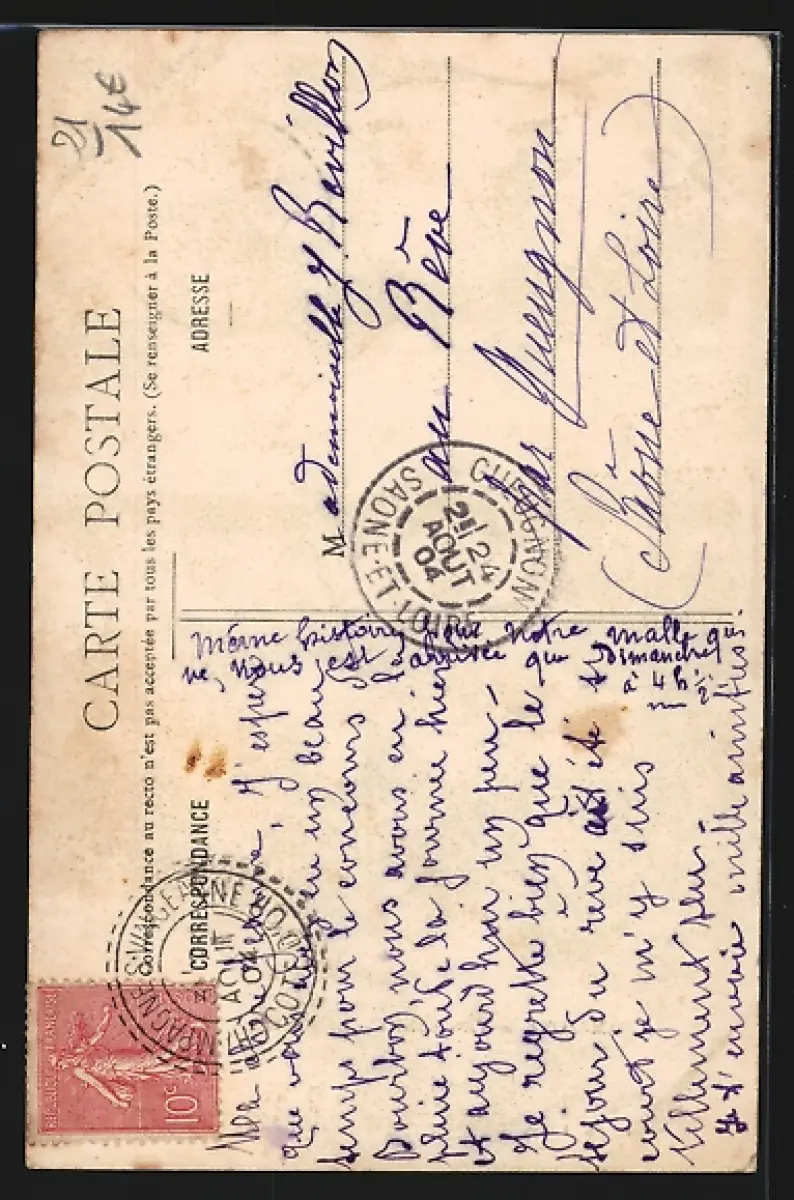 21
14€
CARTE POSTALE
Correspondance au recto n'est pas acceptée par tous les pays étrangers. (Se renseigner à la Poste.)
CORRESPONDANCE
ADRESSE
Mademoiselle Y. Revillon
au Rêve
par Gueugnon
(Saône et Loire)
GUEUGNON
SAÔNE-ET-LOIRE
24
AOUT
04
AOUT
04
10c
Ma chère, J'espère
que vous avez eu un beau
temps pour le concours de
Bourbon, nous avons eu de la
pluie toute la journée hier
et aujourd'hui un peu -
Je regrette bien que le
séjour du rêve ait été si
court je m'y suis
tellement plu.
Je t'envoie mille amitiés
Même histoire pour notre malle qui
ne nous est arrivée que Dimanche
à 4h ½